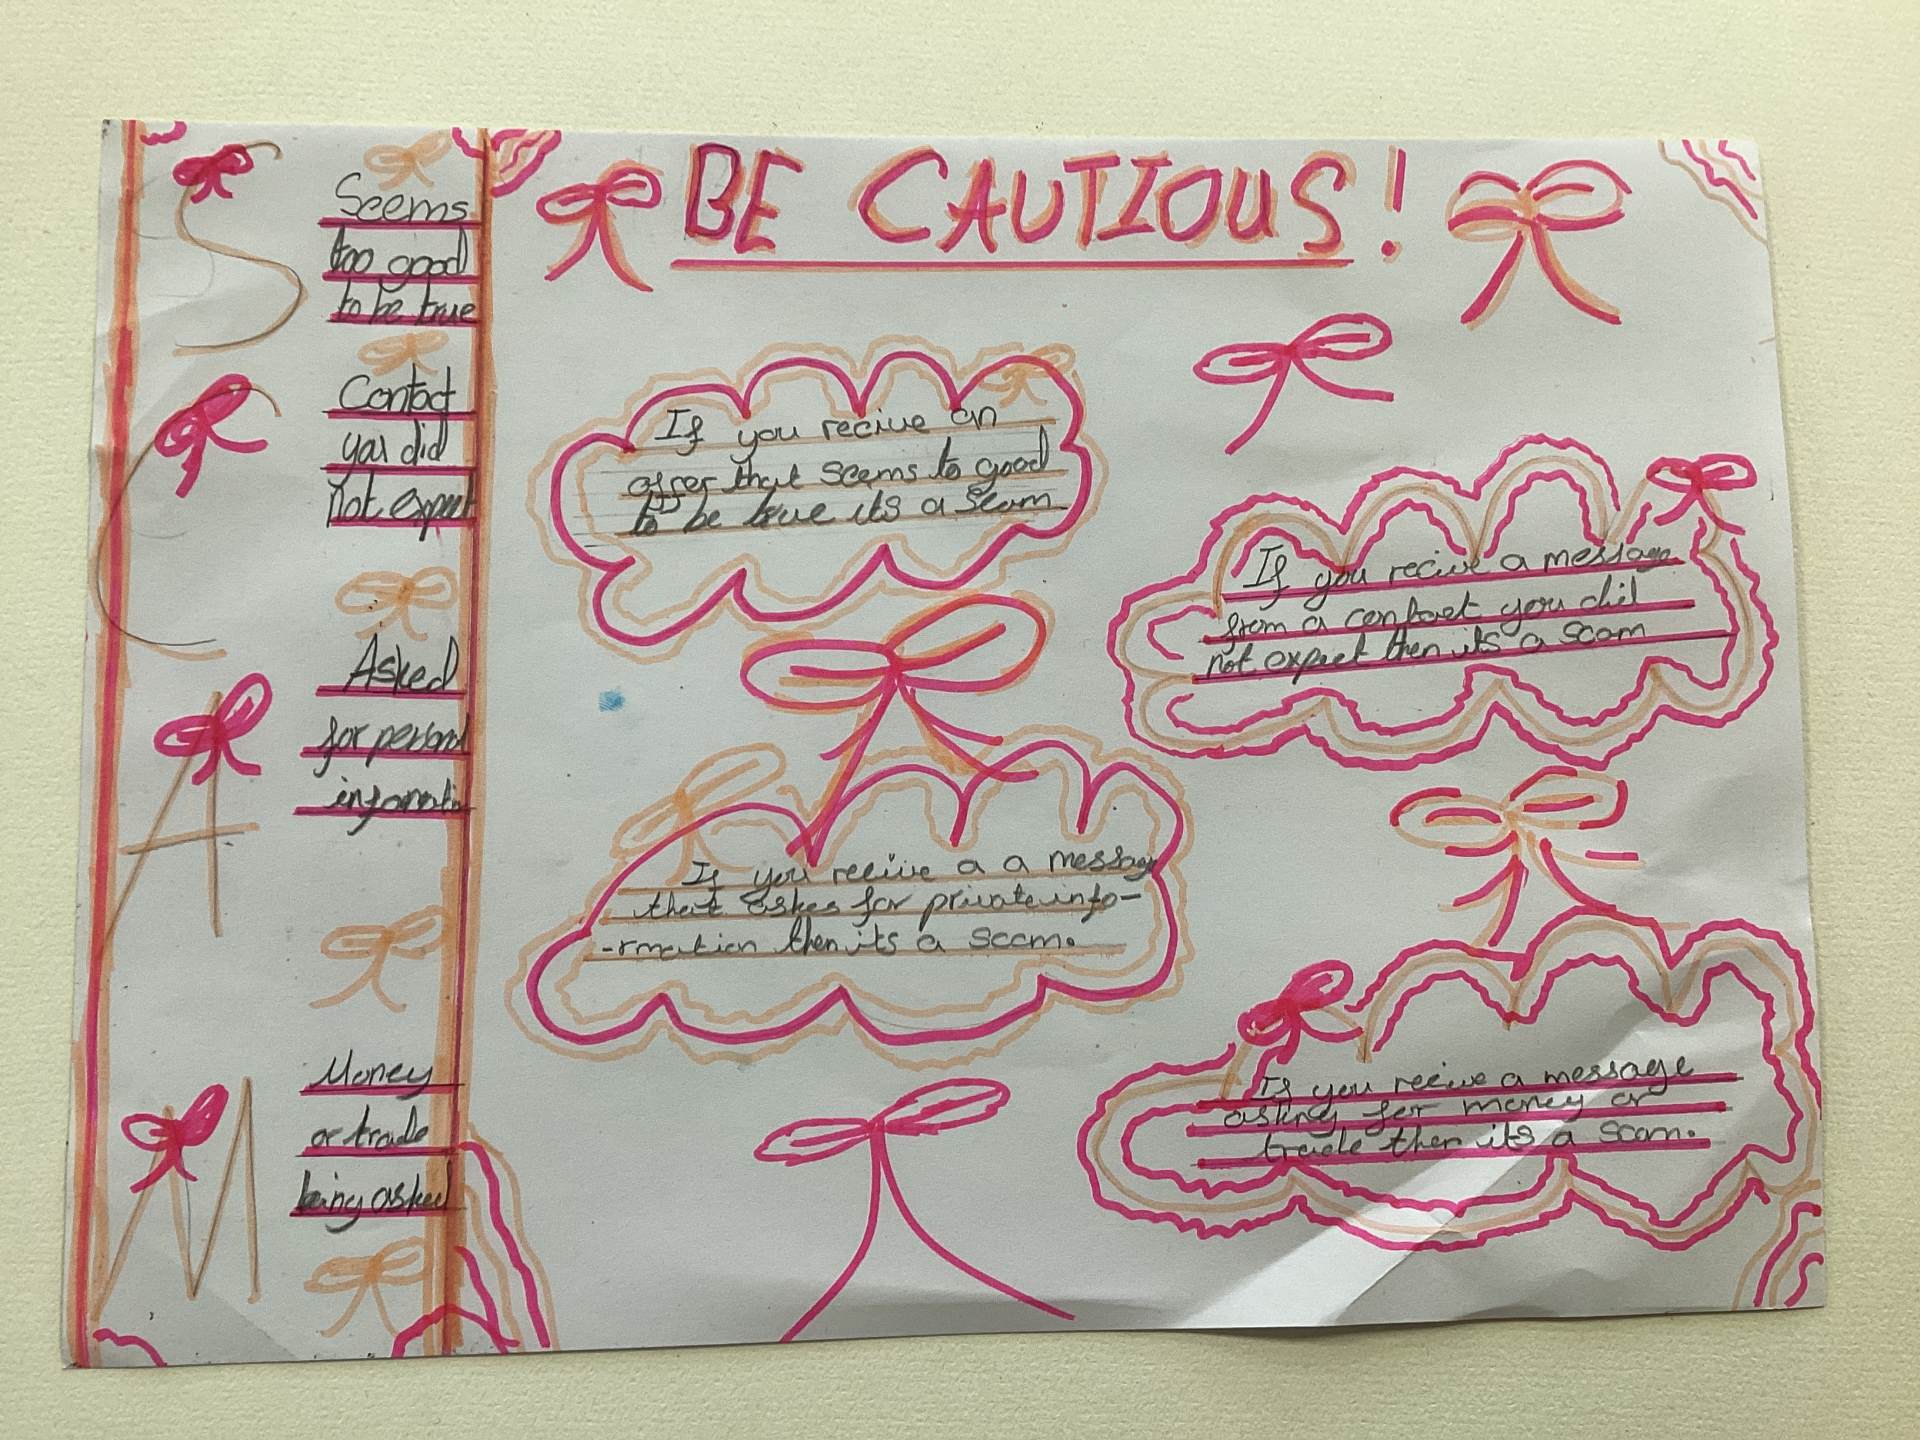 BE CAUTIOUS!
S
Seems
too good
to be true
C
Contact
you did
not expect
A
Asked
for personal
informatin
M
Money
or trade
being asked
If you recive an
offer that seems to good
to be true its a scam
If you recive a message
from a contact you did
not expect then its a scam
If you recive a a message
that askes for private info-
-rmation then its a scam.
If you recive a message
asking for money or
trade then its a scam.